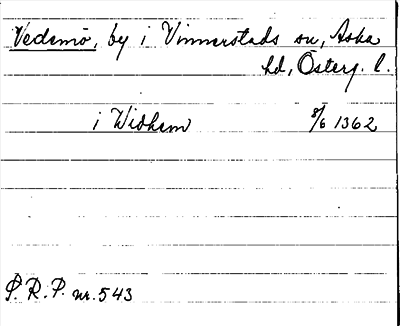 Vedemö, by i Vinnerstads sn, Aska
hd, Österg. l.
i Widhem 8/6 1362
S.R.P. nr. 543